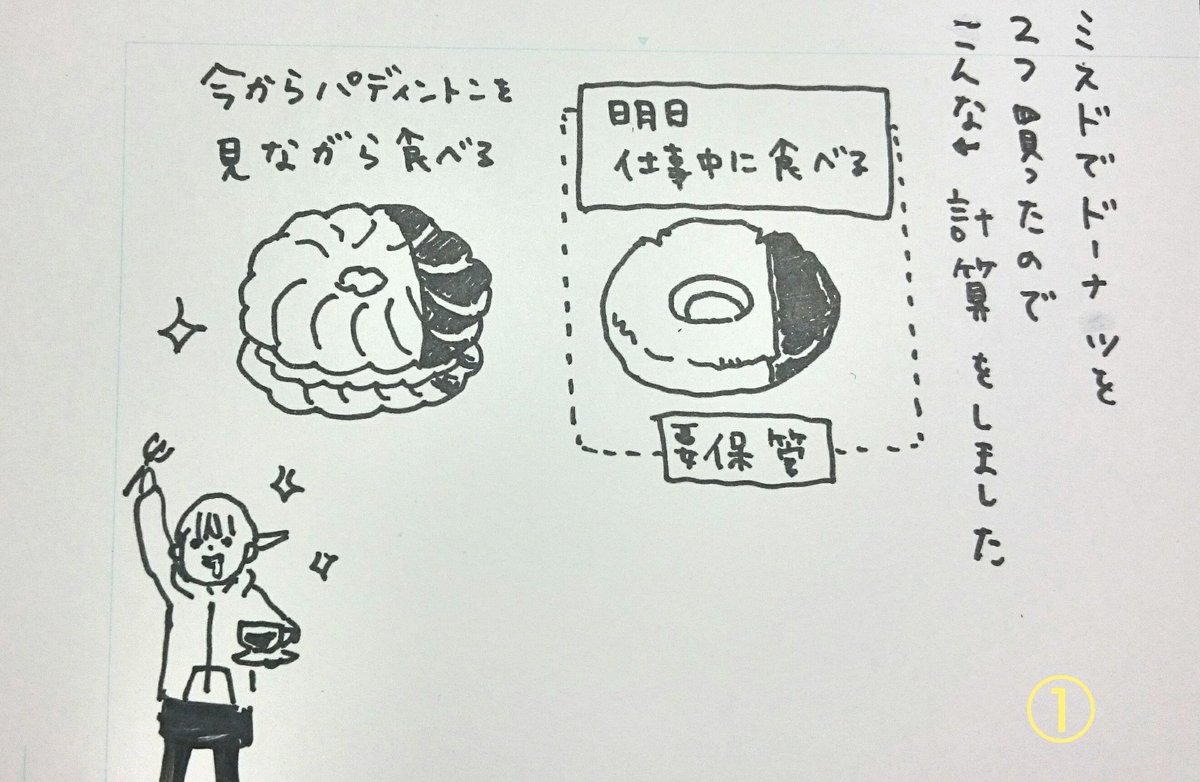 ミスドでドーナツを
2つ買ったので
こんな計算をしました
明日
仕事中に食べる
要保管
今からパディントンを
見ながら食べる
①